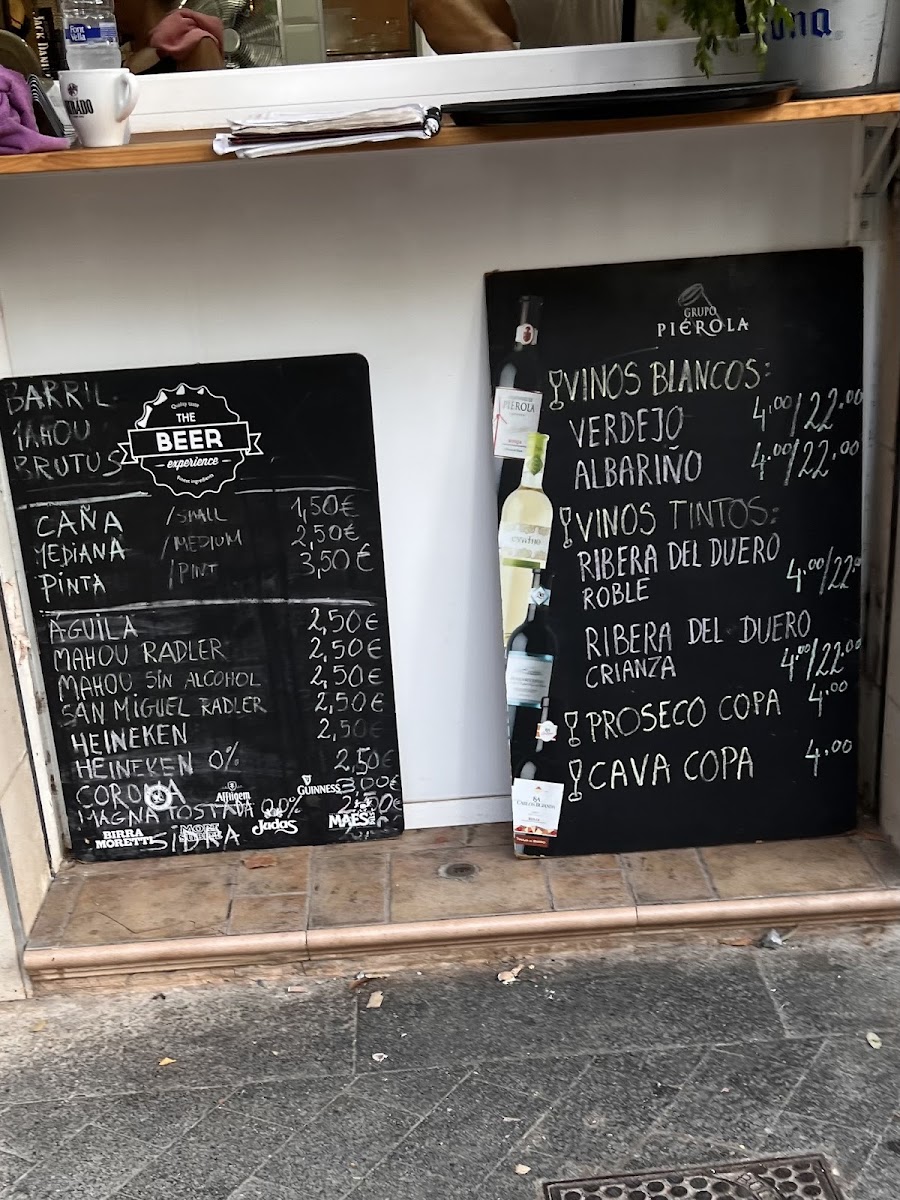 JACK DANI
Font Vella
BARRIL
MAHOU
BRUTUS
Quality taste
THE
BEER
experience
finest ingredients
CAÑA /SMALL 1,50€
MEDIANA /MEDIUM 2,50€
PINTA /PINT 3,50€
ÁGUILA 2,50€
MAHOU RADLER 2,50€
MAHOU SIN ALCOHOL 2,50€
SAN MIGUEL RADLER 2,50€
HEINEKEN 2,50€
HEINEKEN 0% 2,50€
CORONA 3,00€
MAGNA TOSTADA 0,0% 2,50€
SIDRA
Affligem
GUINNESS
BIRRA MORETTI
Judas
MAES
GRUPO
PIÉROLA
VINOS BLANCOS:
VERDEJO 4.00/22.00
ALBARIÑO 4.00/22.00
VINOS TINTOS:
RIBERA DEL DUERO
ROBLE 4.00/22.00
RIBERA DEL DUERO
CRIANZA 4.00/22.00
PROSECO COPA 4.00
CAVA COPA 4.00
PIÉROLA